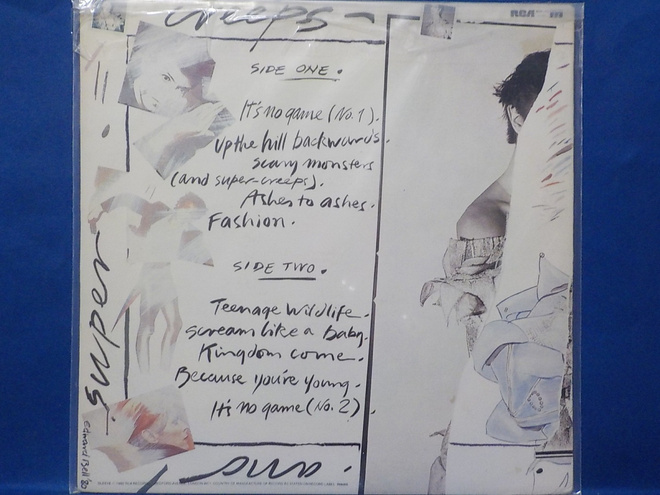 creeps
RCA
SIDE ONE.
It's no game (No. 1).
up the hill backwards.
scary monsters
(and super-creeps).
Ashes to ashes.
Fashion.
SIDE TWO.
Teenage Wildlife.
scream like a baby.
Kingdom come.
Because you're young.
It's no game (No. 2).
super
Edward Bell '80
and